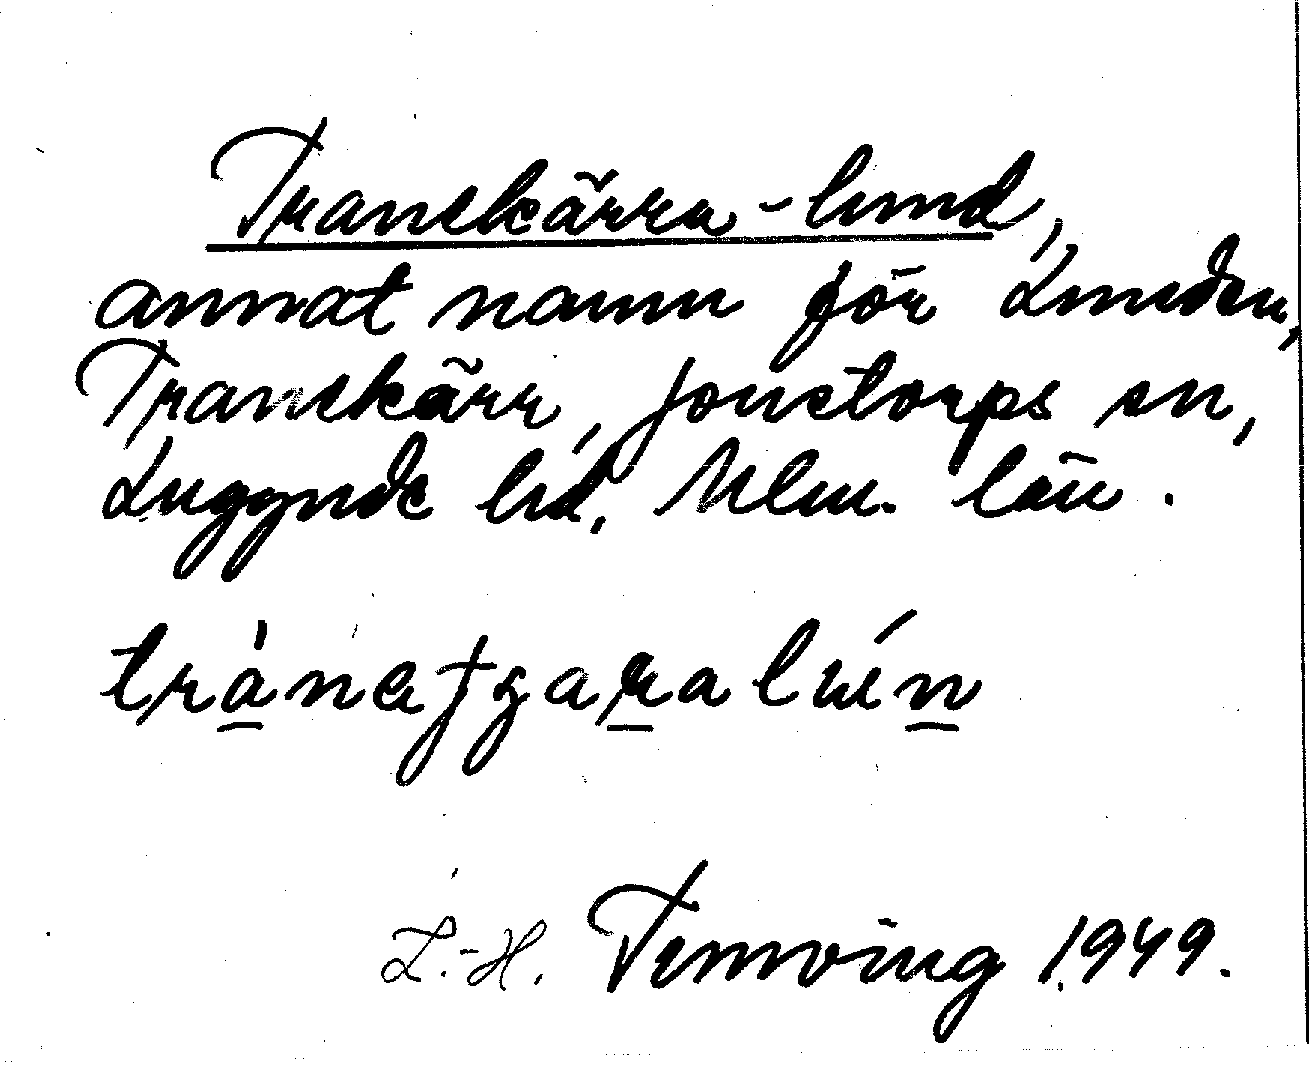 Transkärra-lund,
annat namn för Lunden,
Transkärr, Jonstorps sn,
Luggude hd, Mlm. län.
L.-H. Ternving 1949.